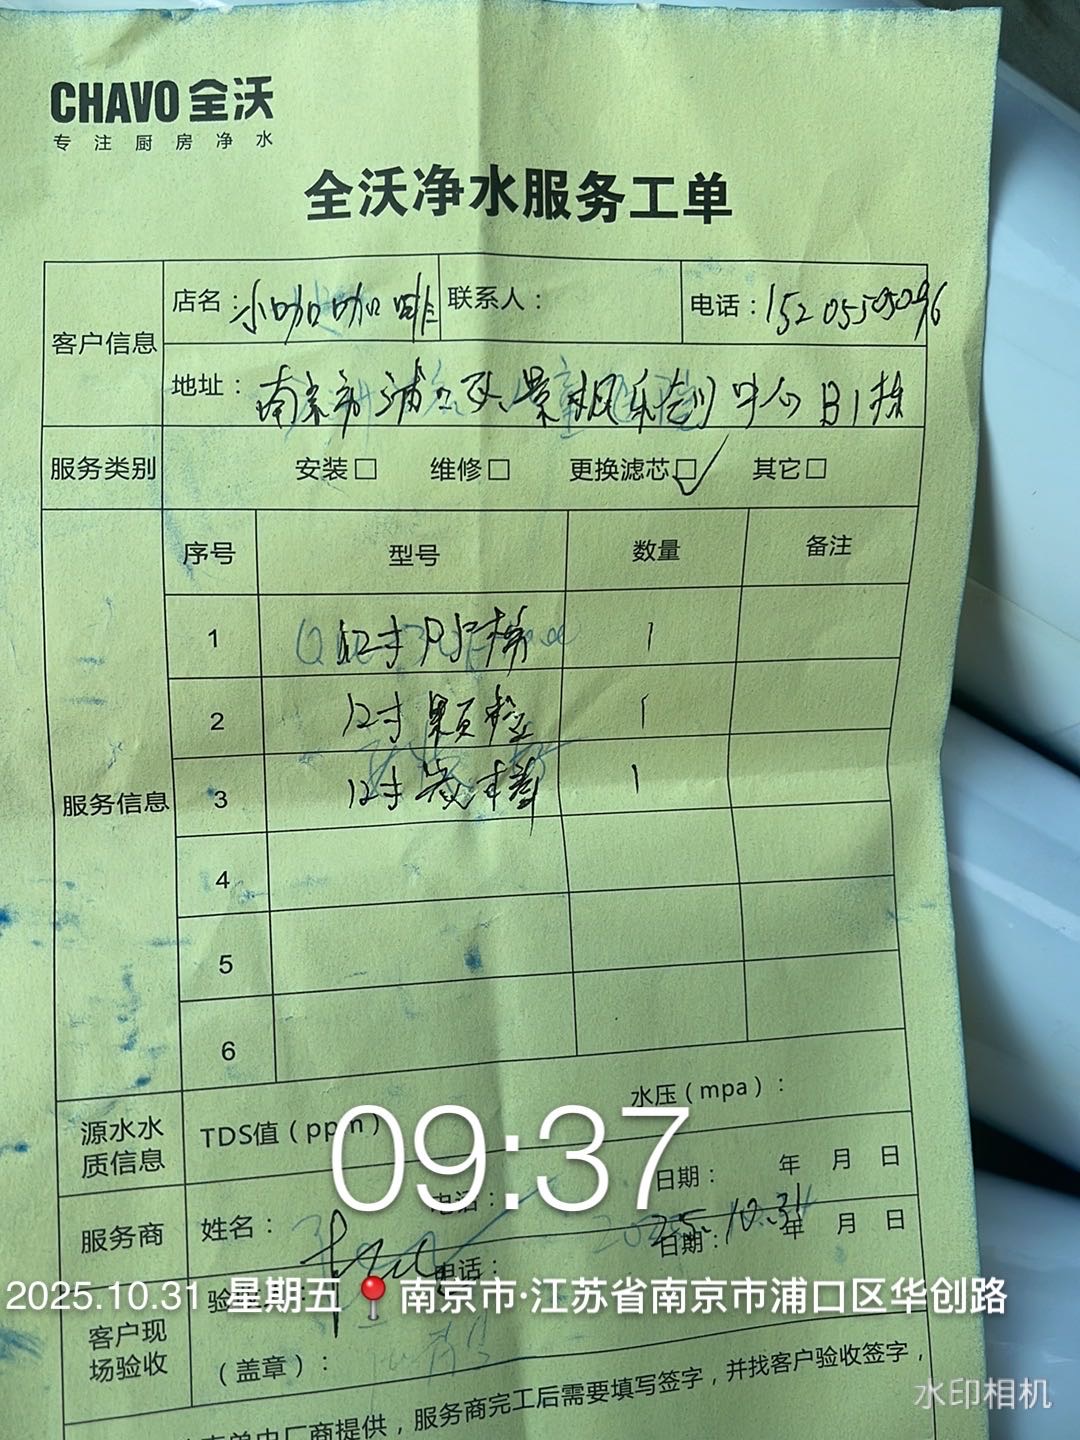 CHAVO 全沃
专注厨房净水
全沃净水服务工单
客户信息
店名：小咖咖啡
联系人：
电话：15205505096
地址：南京市浦口区 中心B1栋
服务类别
安装□ 维修□ 更换滤芯□✓ 其它□
服务信息
序号 型号 数量 备注
1 12寸 棉 1
2 12寸颗粒 1
3 12寸炭棒 1
4
5
6
源水水质信息
TDS值（ppm）
水压（mpa）：
服务商
姓名：
电话：
日期： 年 月 日
25.10.31
客户现场验收
电话：
日期： 年 月 日
（盖章）：
厂商提供，服务商完工后需要填写签字，并找客户验收签字，
09:37
2025.10.31 星期五 📍南京市·江苏省南京市浦口区华创路
水印相机